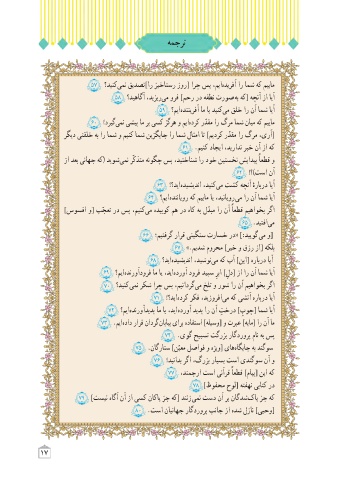 ترجمه
ماییم که شما را آفریده‌ایم، پس چرا [روز رستاخیز را] تصدیق نمی‌کنید؟ ۵۷
آیا از آنچه [به‌صورت نطفه در رحم] فرو می‌ریزید، آگاهید؟ ۵۸
آیا شما آن را خلق می‌کنید یا ما آفریننده‌ایم؟ ۵۹
ماییم که میان شما مرگ را مقدّر کرده‌ایم و هرگز کسی بر ما پیشی نمی‌گیرد؛ ۶۰
[آری، مرگ را مقدّر کردیم] تا امثال شما را جایگزین شما کنیم و شما را به خلقتی دیگر
که از آن خبر ندارید، ایجاد کنیم. ۶۱
و قطعاً پیدایش نخستین خود را شناختید، پس چگونه متذکّر نمی‌شوید [که جهانی بعد از
آن است]؟! ۶۲
آیا دربارهٔ آنچه کِشت می‌کنید، اندیشیده‌اید؟! ۶۳
آیا شما آن را می‌رویانید، یا ماییم که رویاننده‌ایم؟ ۶۴
اگر بخواهیم قطعاً آن را مبدّل به کاه در هم کوبیده می‌کنیم، پس در تعجّب [و افسوس]
می‌افتید، ۶۵
[و می‌گویید:] «در خسارت سنگینی قرار گرفتیم؛ ۶۶
بلکه [از رزق و خیر] محروم شدیم.» ۶۷
آیا دربارهٔ [این] آب که می‌نوشید، اندیشیده‌اید؟ ۶۸
آیا شما آن را از [دلِ] ابر سپید فرود آورده‌اید، یا ما فرودآورنده‌ایم؟ ۶۹
اگر بخواهیم آن را شور و تلخ می‌گردانیم، پس چرا شکر نمی‌کنید؟ ۷۰
آیا درباره آتشی که می‌افروزید، فکر کرده‌اید؟! ۷۱
آیا شما [چوبِ] درختِ آن را پدید آورده‌اید، یا ما پدیدآورنده‌ایم؟ ۷۲
ما آن را [مایه] عبرت و [وسیله] استفاده برای بیابان‌گردان قرار داده‌ایم. ۷۳
پس به نام پروردگار بزرگت تسبیح گوی. ۷۴
سوگند به جایگاه‌های [ویژه و فواصل معیّن] ستارگان. ۷۵
و آن سوگندی است بسیار بزرگ، اگر بدانید! ۷۶
که این [پیام] قطعاً قرآنی است ارجمند، ۷۷
در کتابی نهفته [لوح محفوظ]. ۷۸
که جز پاک‌شدگان بر آن دست نمی‌زنند [جز پاکان کسی از آن آگاه نیست]. ۷۹
[وحیی] نازل شده از جانب پروردگار جهانیان است. ۸۰
۱۷